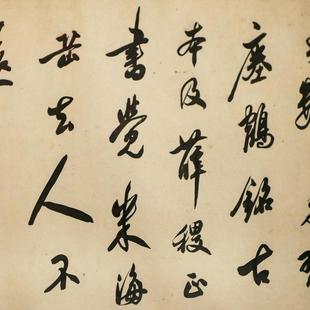 瘞鶴銘古
本及薛稷正
書覺米海
岳去人不
遠